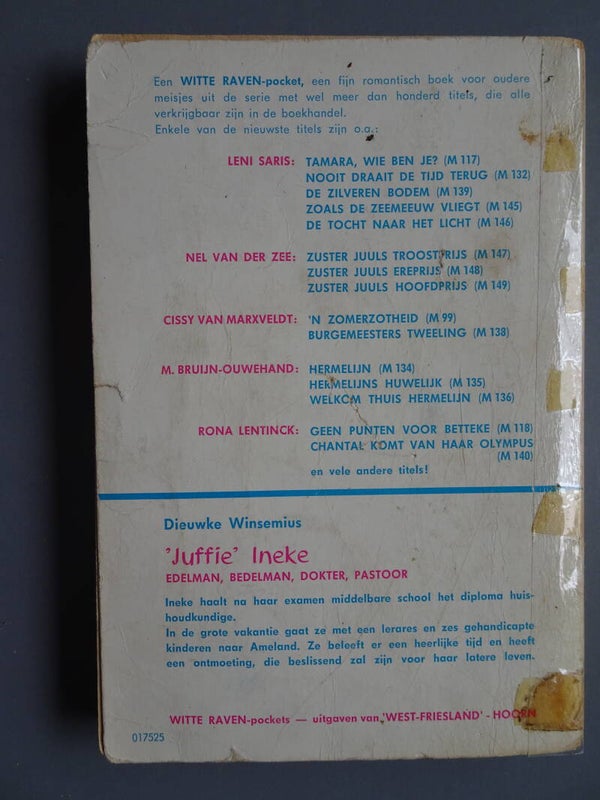 Een WITTE RAVEN-pocket, een fijn romantisch boek voor oudere
meisjes uit de serie met wel meer dan honderd titels, die alle
verkrijgbaar zijn in de boekhandel.
Enkele van de nieuwste titels zijn o.a.:
LENI SARIS: TAMARA, WIE BEN JE? (M 117)
NOOIT DRAAIT DE TIJD TERUG (M 132)
DE ZILVEREN BODEM (M 139)
ZOALS DE ZEEMEEUW VLIEGT (M 145)
DE TOCHT NAAR HET LICHT (M 146)
NEL VAN DER ZEE: ZUSTER JUULS TROOSTPRIJS (M 147)
ZUSTER JUULS EREPRIJS (M 148)
ZUSTER JUULS HOOFDPRIJS (M 149)
CISSY VAN MARXVELDT: 'N ZOMERZOTHEID (M 99)
BURGEMEESTERS TWEELING (M 138)
M. BRUIJN-OUWEHAND: HERMELIJN (M 134)
HERMELIJNS HUWELIJK (M 135)
WELKOM THUIS HERMELIJN (M 136)
RONA LENTINCK: GEEN PUNTEN VOOR BETTEKE (M 118)
CHANTAL KOMT VAN HAAR OLYMPUS
(M 140)
en vele andere titels!
Dieuwke Winsemius
'Juffie' Ineke
EDELMAN, BEDELMAN, DOKTER, PASTOOR
Ineke haalt na haar examen middelbare school het diploma huis-
houdkundige.
In de grote vakantie gaat ze met een lerares en zes gehandicapte
kinderen naar Ameland. Ze beleeft er een heerlijke tijd en heeft
een antmoeting, die beslissend zal zijn voor haar latere leven.
WITTE RAVEN-pockets — uitgaven van 'WEST-FRIESLAND' - HOORN
017525